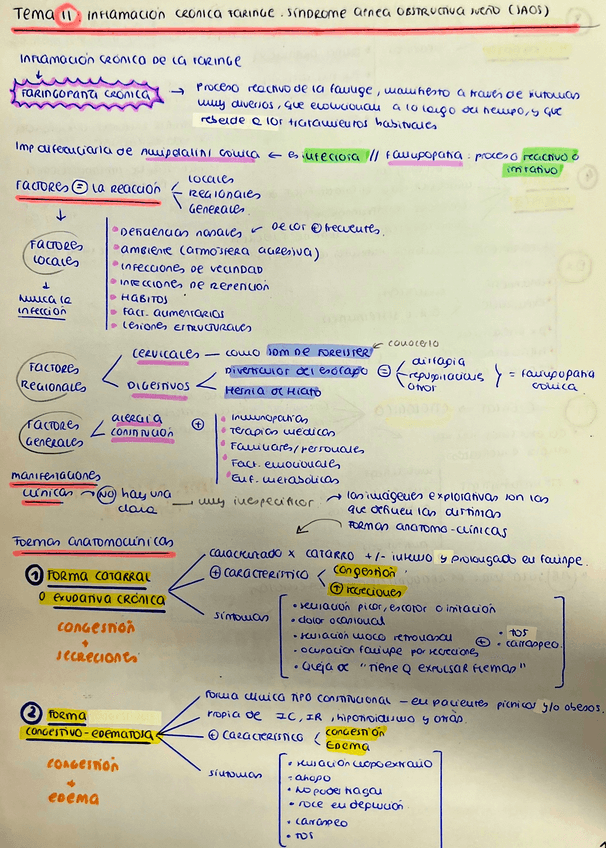 Tema 11 Inflamación crónica faringe. Síndrome apnea obstructiva sueño (SAOS)
Inflamación crónica de la faringe
Faringopatía crónica → proceso reactivo de la faringe, manifiesto a través de síntomas
muy diversos, que evolucionan a lo largo del tiempo, y que
rebelde a los tratamientos habituales
Imp diferenciarla de ← es infecciosa // faringopatía: proceso reactivo o
irritativo
Factores = la reacción
Locales
Regionales
Generales
Factores
locales
↓
Nunca la
infección
• Deficiencias nasales ✓ De los + frecuentes.
• Ambiente (atmósfera agresiva)
• Infecciones de vecindad
• Infecciones de repetición
• Hábitos
• Fact. alimentarios
• Lesiones estructurales
Factores
Regionales
Cervicales — como SDM de Forestier
conocerlo
Digestivos
Divertículos del esófago
Hernia de hiato
= disfagia
regurgitaciones
} = faringopatía
crónica
Factores
Generales
Alergia
Constitución
+
• Inmunopatías
• Terapias médicas
• Familiares/personales
• Fact. emocionales
• Enf. metabólicas
Manifestaciones
clínicas → NO hay una
clara — muy inespecífico → las imágenes explorativas son las
que definen las distintas
formas anatomo-clínicas
Formas anatomoclínicas
1 Forma catarral
o exudativa crónica
Congestión
+
secreciones
caracterizado x catarro +/- intenso y prolongado en faringe.
+ característico
Congestión
+ secreciones
síntomas
• sensación picor, escozor o irritación
• dolor ocasional
• sensación moco retronasal
• ocupación faringe por secreciones
• Queja de "tiene q expulsar flemas"
+
• TOS
• carraspeo
2 Forma
congestivo-edematosa
Congestión
+
edema
Forma clínica tipo constitucional — en pacientes pícnicos y/o obesos.
Propia de IC, IR, hipotiroidismo y otras.
+ característico
congestión
Edema
síntomas
• sensación cuerpo extraño
- ahogo
• No poder tragar
• roce en deglución
• carraspeo
• TOS